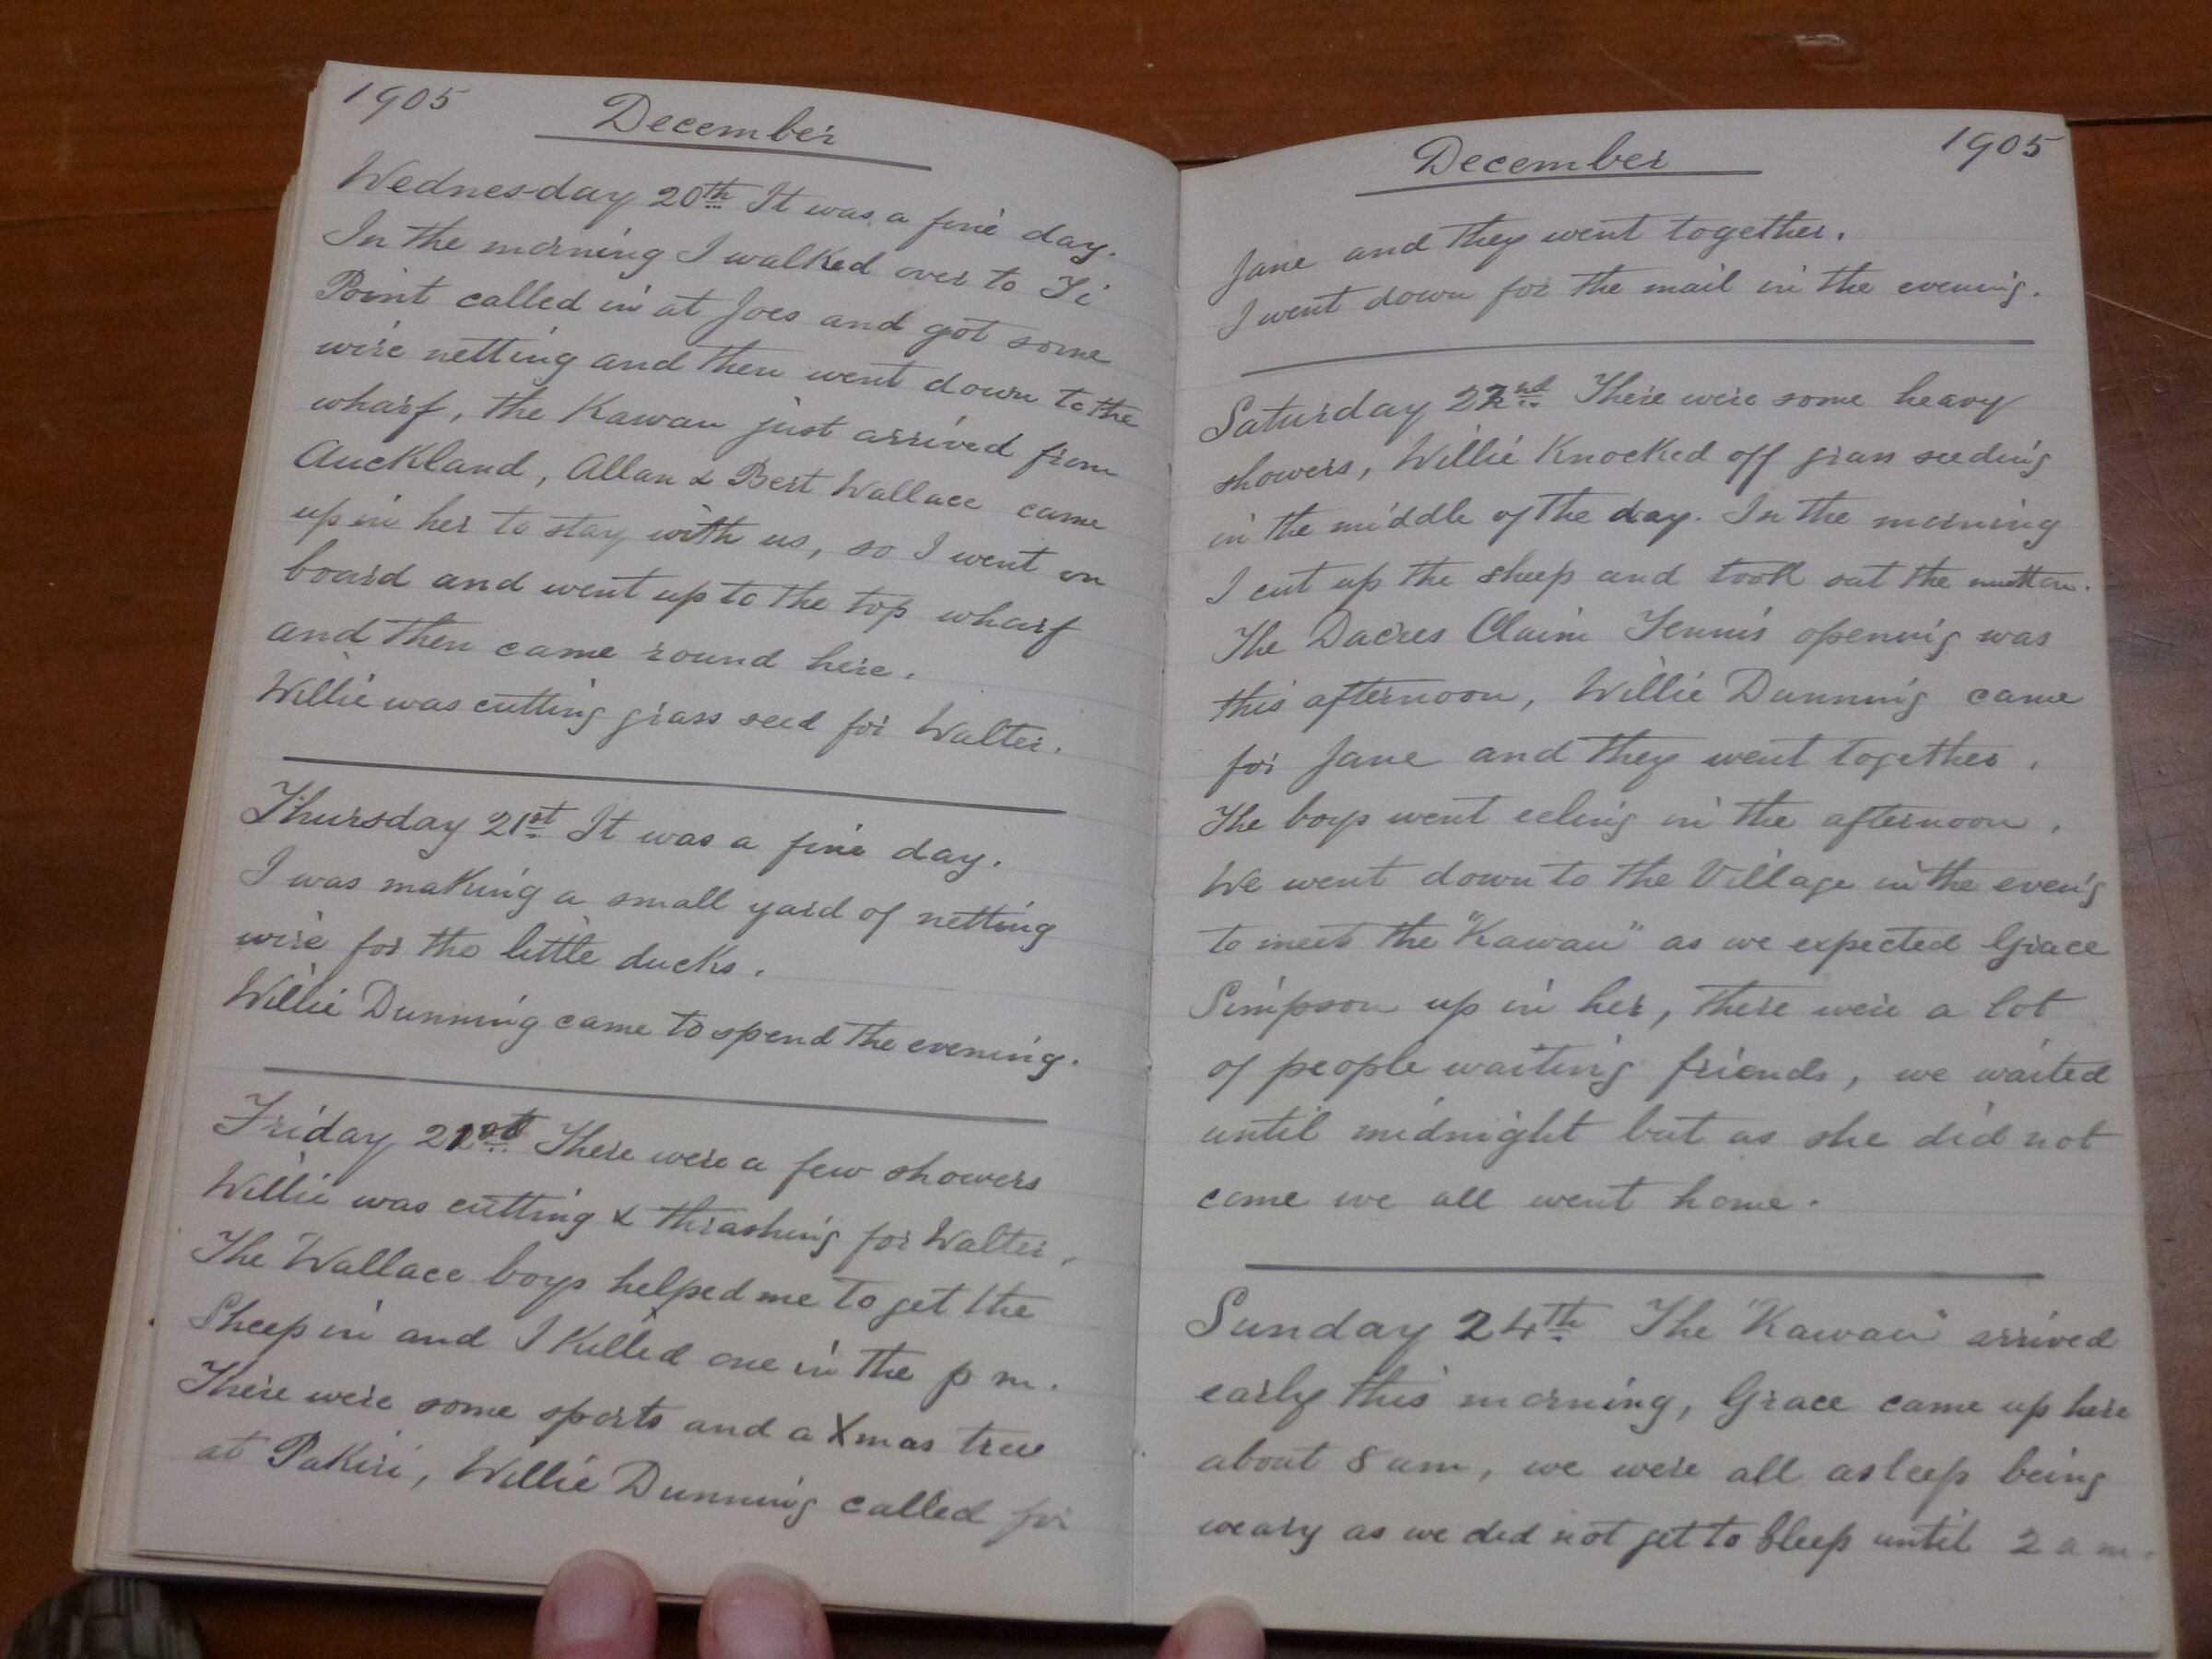 1905
December
Wednesday 20th It was a fine day.
In the morning I walked over to Ti
Point called in at Joes and got some
wire netting and then went down to the
wharf, the Kawau just arrived from
Auckland, Allan & Bert Wallace came
up in her to stay with us, so I went on
board and went up to the top wharf
and then came round here.
Willie was cutting grass seed for Walter.
Thursday 21st It was a fine day.
I was making a small yard of netting
wire for the little ducks.
Willie Dunning came to spend the evening.
Friday There were a few showers
Willie was cutting & thrashing for Walter,
The Wallace boys helped me to get the
Sheep in and I killed one in the p m.
There were some sports and a Xmas tree
at Pakiri, Willie Dunning called for
December
1905
Jane and they went together.
I went down for the mail in the evening.
Saturday There were some heavy
showers, Willie Knocked off grass seeding
in the middle of the day. In the morning
I cut up the sheep and took out the mutton.
The Dacres Claim Tennis opening was
this afternoon, Willie Dunning came
for Jane and they went together.
The boys went eeling in the afternoon.
We went down to the Village in the eveng
to meet the "Kawau" as we expected Grace
Simpson up in her, there were a lot
of people waiting friends, we waited
until midnight but as she did not
come we all went home.
Sunday 24th The "Kawau" arrived
early this morning, Grace came up here
about 8 am, we were all asleep being
weary as we did not get to sleep until 2 a m.